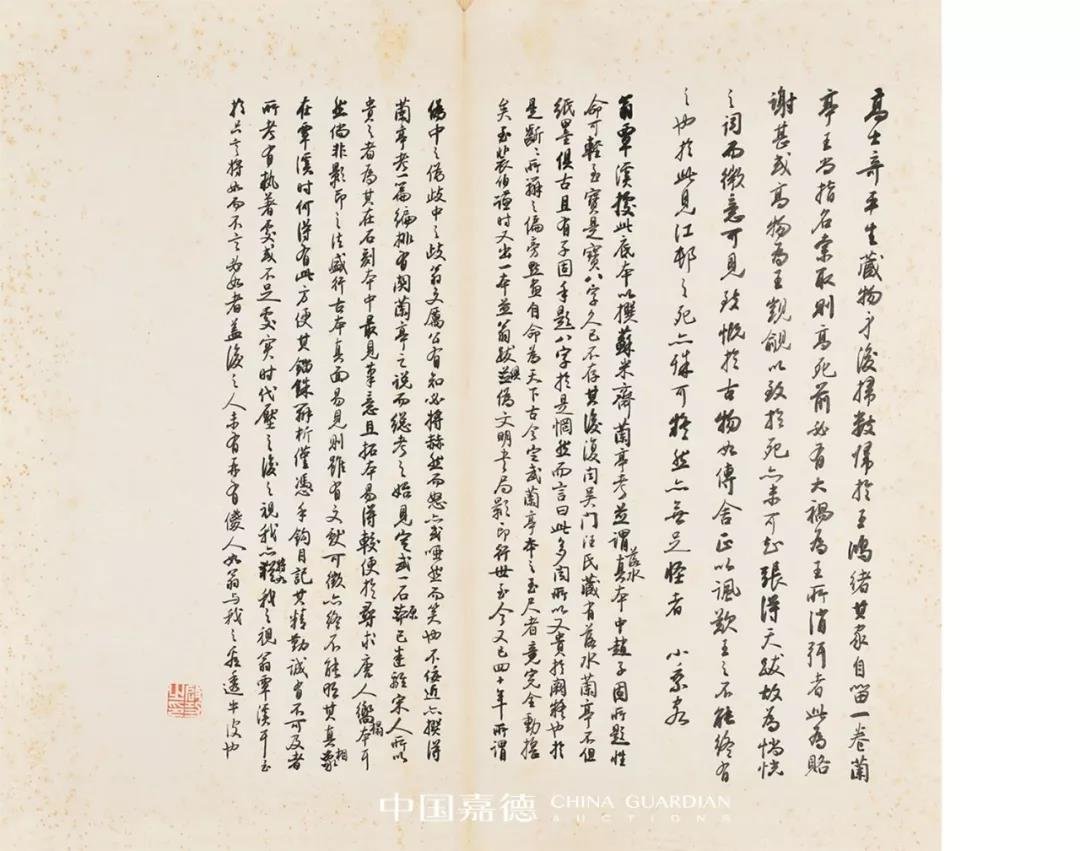 高士奇平生藏物身後掃數歸於王鴻緒其家自留一卷蘭
亭王尚指名索取則高死前必有大禍為王所消弭者此為賂
謝甚或高物為王覬覦以致於死亦未可知張得天跋故為惝恍
之詞而微意可見致慨於古物如傳舍正以諷歎王之不能終有
之也於此見江邨之死亦殊可疑然亦無足怪者　小乘客
翁覃溪據此底本以撰蘇米齋蘭亭考並謂落水真本中趙子固所題性
命可輕至寶是寶八字久已不存其後復聞吳門汪氏藏有落水蘭亭不但
紙墨俱古且有子固手題八字於是惘然而言曰此多聞所以又貴於闕疑也於
是斷斷所辯之偏旁點畫自命為天下古今定武蘭亭本之玉尺者竟完全動搖
矣至裴伯謙時又出一本並翁跋俱偽文明書局影印行世至今又已四十年所謂
偽中之偽歧中之歧翁文厲公有知必將赫然而怒亦或啞然而笑也不佞近亦撰得
蘭亭考一篇編排有關蘭亭之說而總考之始見定武一石原已遠離宋人所以
貴之者為其在石刻本中最見筆意且拓本易得較便於尋求唐人嚮搨本耳
然倘非影印之法盛行古本真面易見則雖有文獻可徵亦終不能明其真相
在覃溪時何得有此方便其錙銖辨析僅憑手鈎目記其精勤誠有不可及者
所考有執著處或不足處實時代壓之後之視我亦將如我之視翁覃溪耳至
於亦將如而不言為如者蓋後之人未有亦有儍人如翁與我之看透半沒也
啟功之印
中国嘉德 CHINA GUARDIAN
AUCTIONS